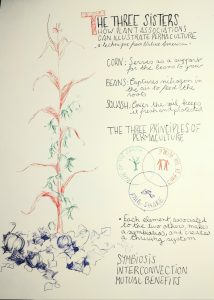 THE THREE SISTERS
HOW PLANT ASSOCIATIONS
CAN ILLUSTRATE PERMACULTURE
a technique from Native Americans
CORN: Serves as a support
for the beans to grow
BEANS: Captures nitrogen in
the air to feed the
roots
SQUASH: Cover the soil, keeps
it fresh and protected
THE THREE PRINCIPLES OF
PERMACULTURE
FAIR SHARE
• Each element, associated
to the two others, makes
a symbiosis, and creates
a thriving system
SYMBIOSIS
INTERCONNECTION
MUTUAL BENEFITS